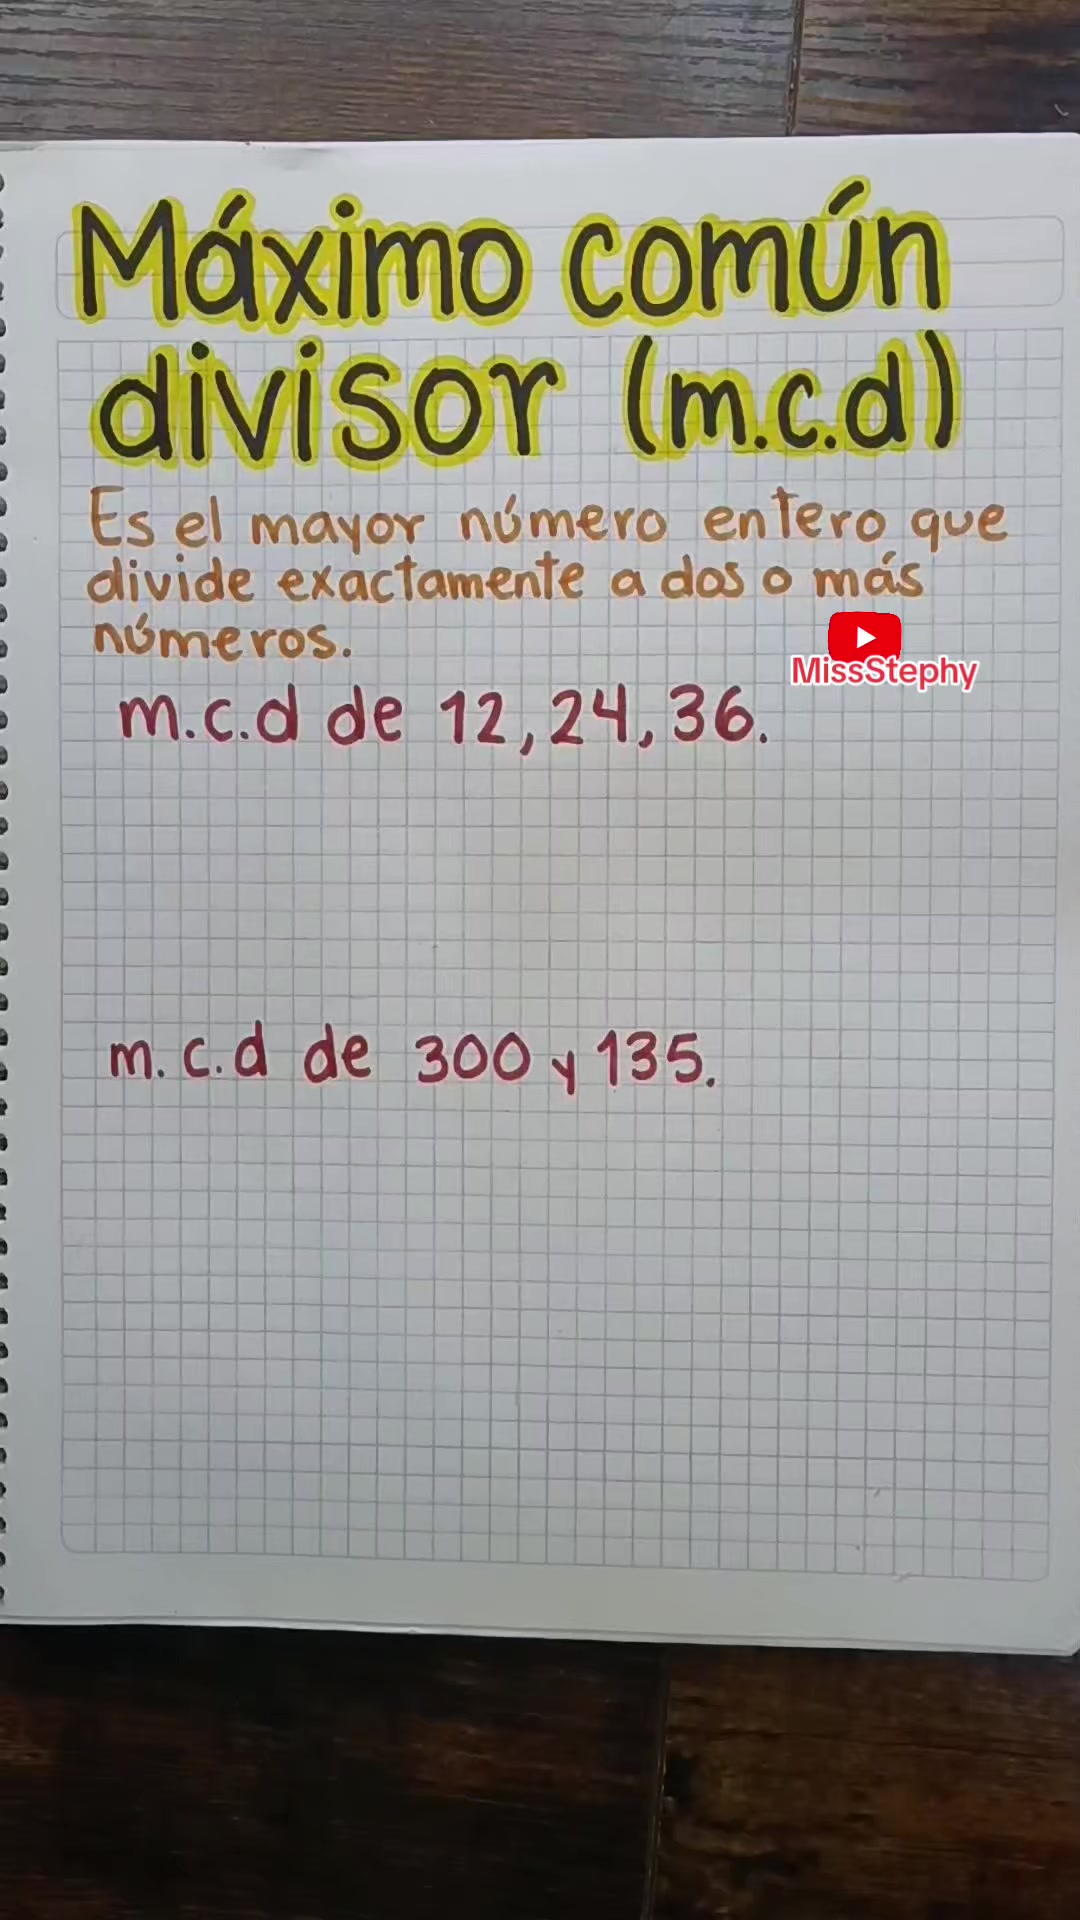 Máximo común
divisor (m.c.d)
Es el mayor número entero que
divide exactamente a dos o más
números.
MissStephy
m.c.d de 12, 24, 36.
m.c.d de 300 y 135.